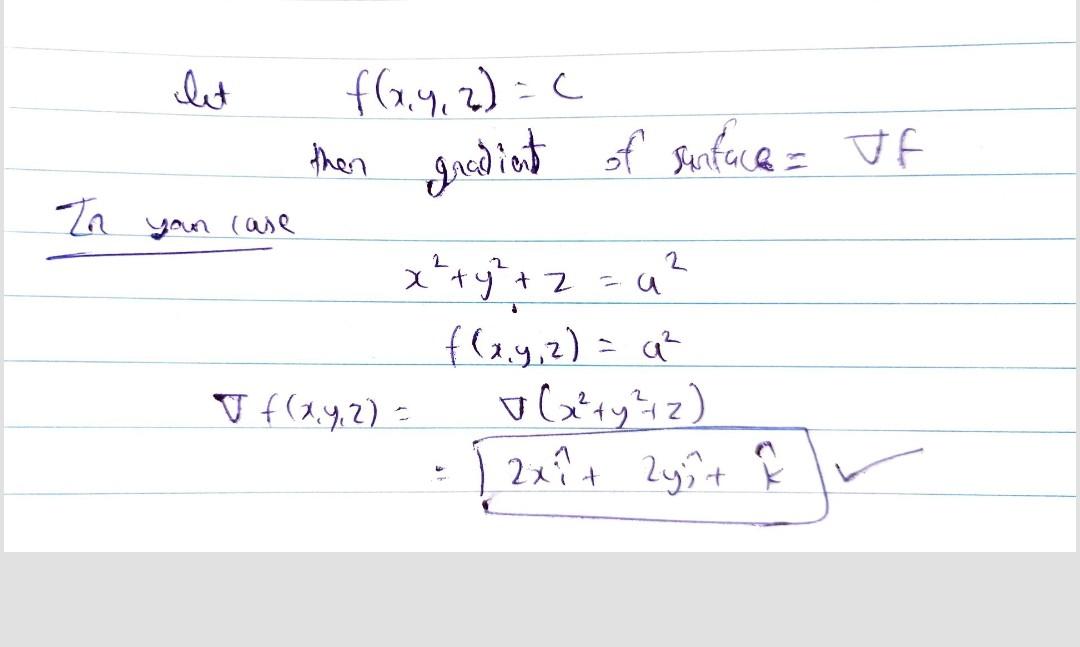 let f(x,y,z) = C
then gradient of surface = ∇f
In your case
x²+y²+z = a²
f(x,y,z) = a²
∇f(x,y,z) = ∇(x²+y²+z)
= 2xî + 2yĵ + k̂ ✓